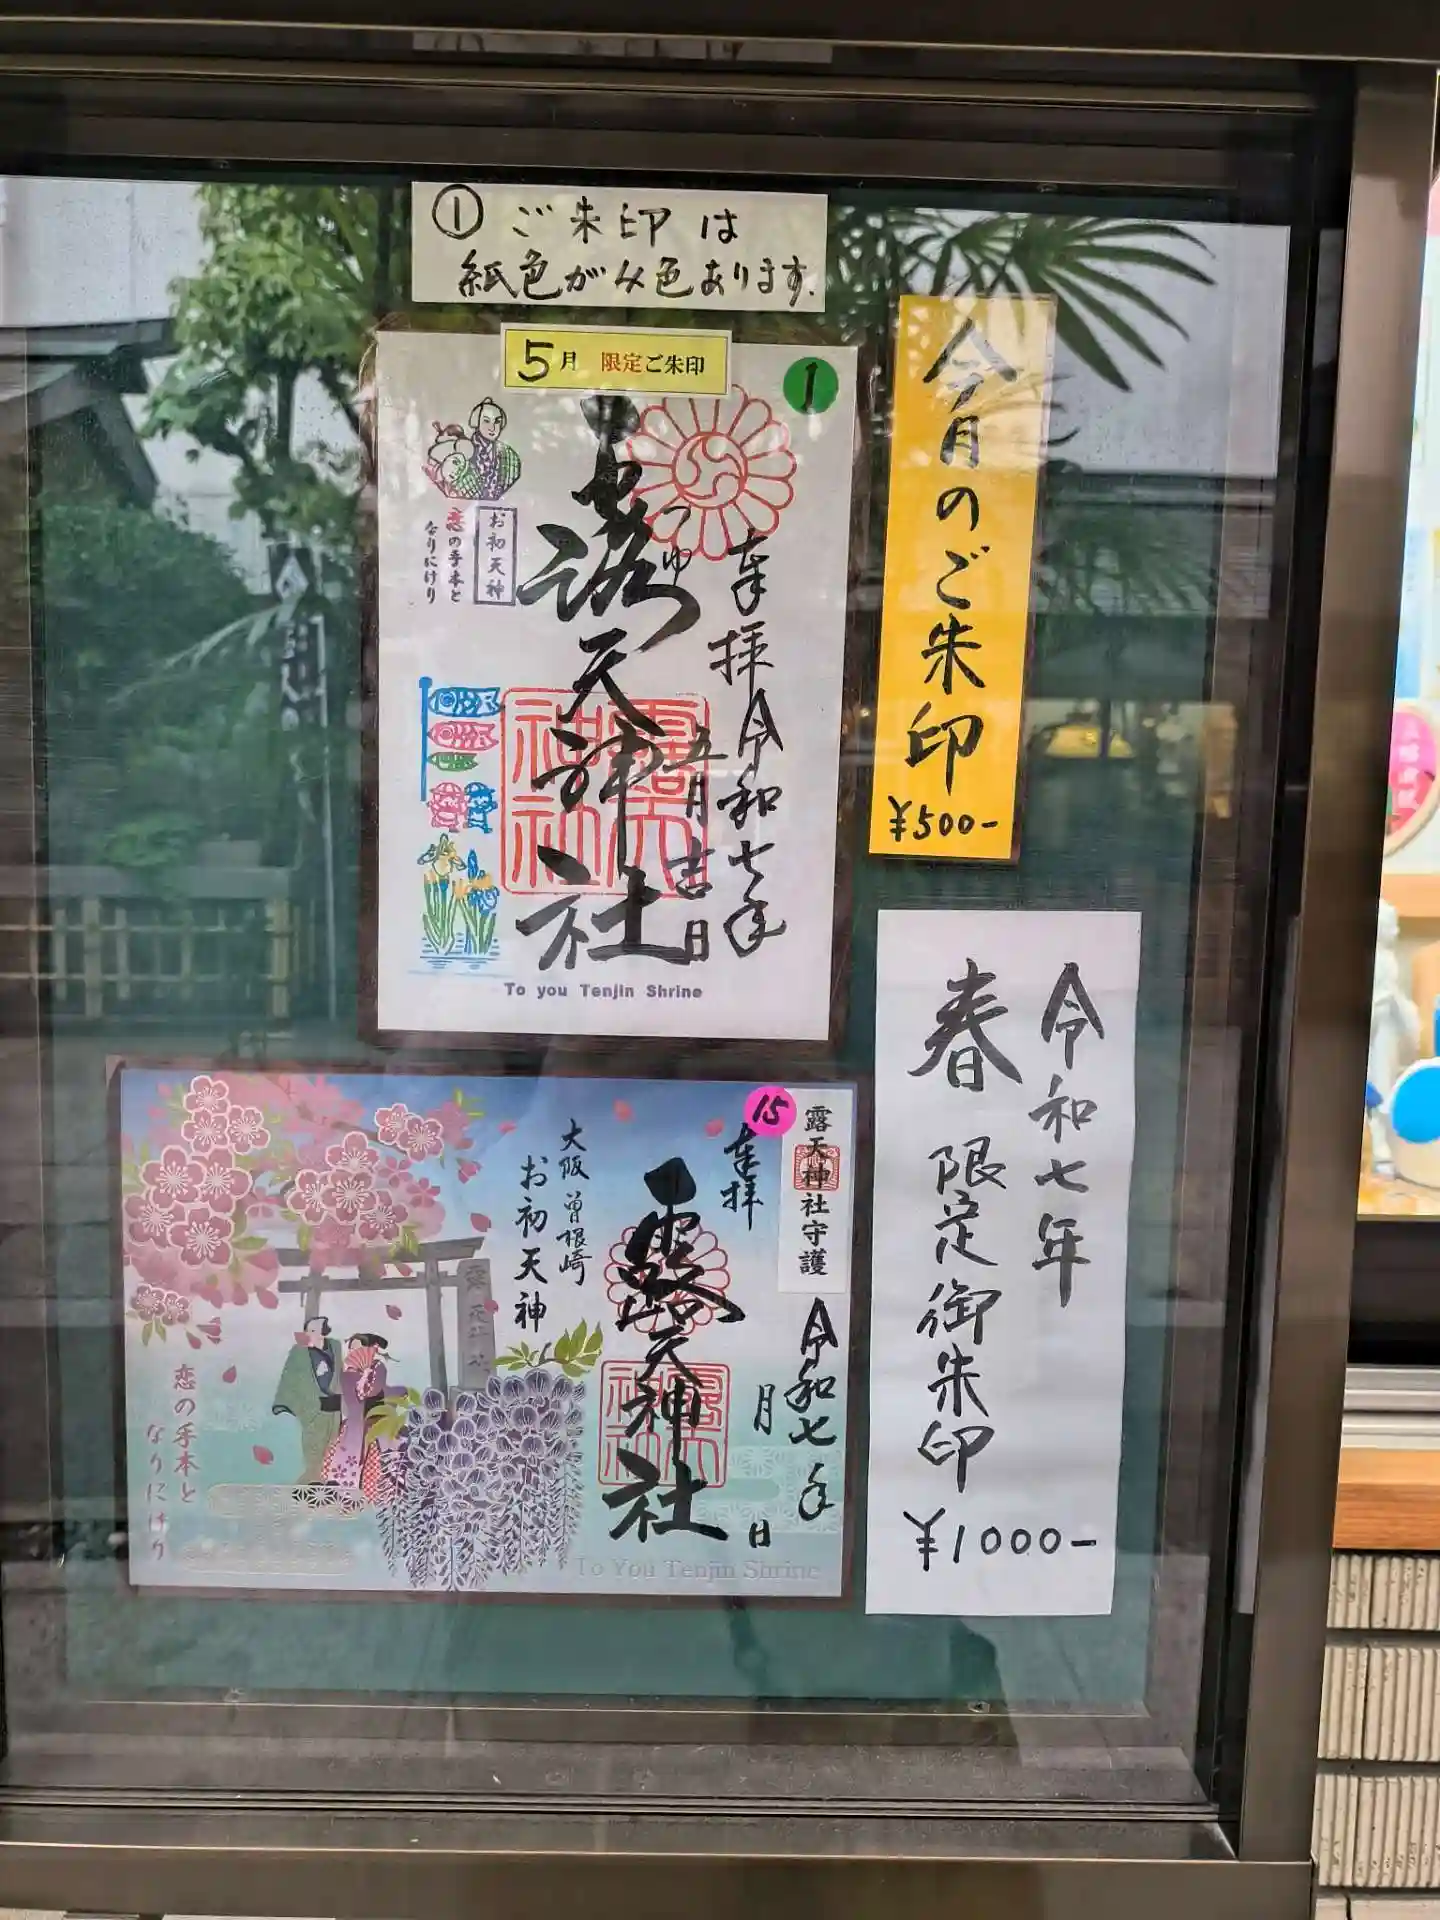 ① ご朱印は
紙色がみ色あります.
5月 限定ご朱印
1
奉拝
令和七年
五月吉日
つゆ
露天神社
お初天神
恋の手本と
なりにけり
To you Tenjin Shrine
今月のご朱印
¥500-
令和七年
春 限定御朱印
¥1000-
15
露天神社守護
奉拝
令和七年
月 日
露天神社
大阪 曽根崎
お初天神
恋の手本と
なりにけり
To You Tenjin Shrine